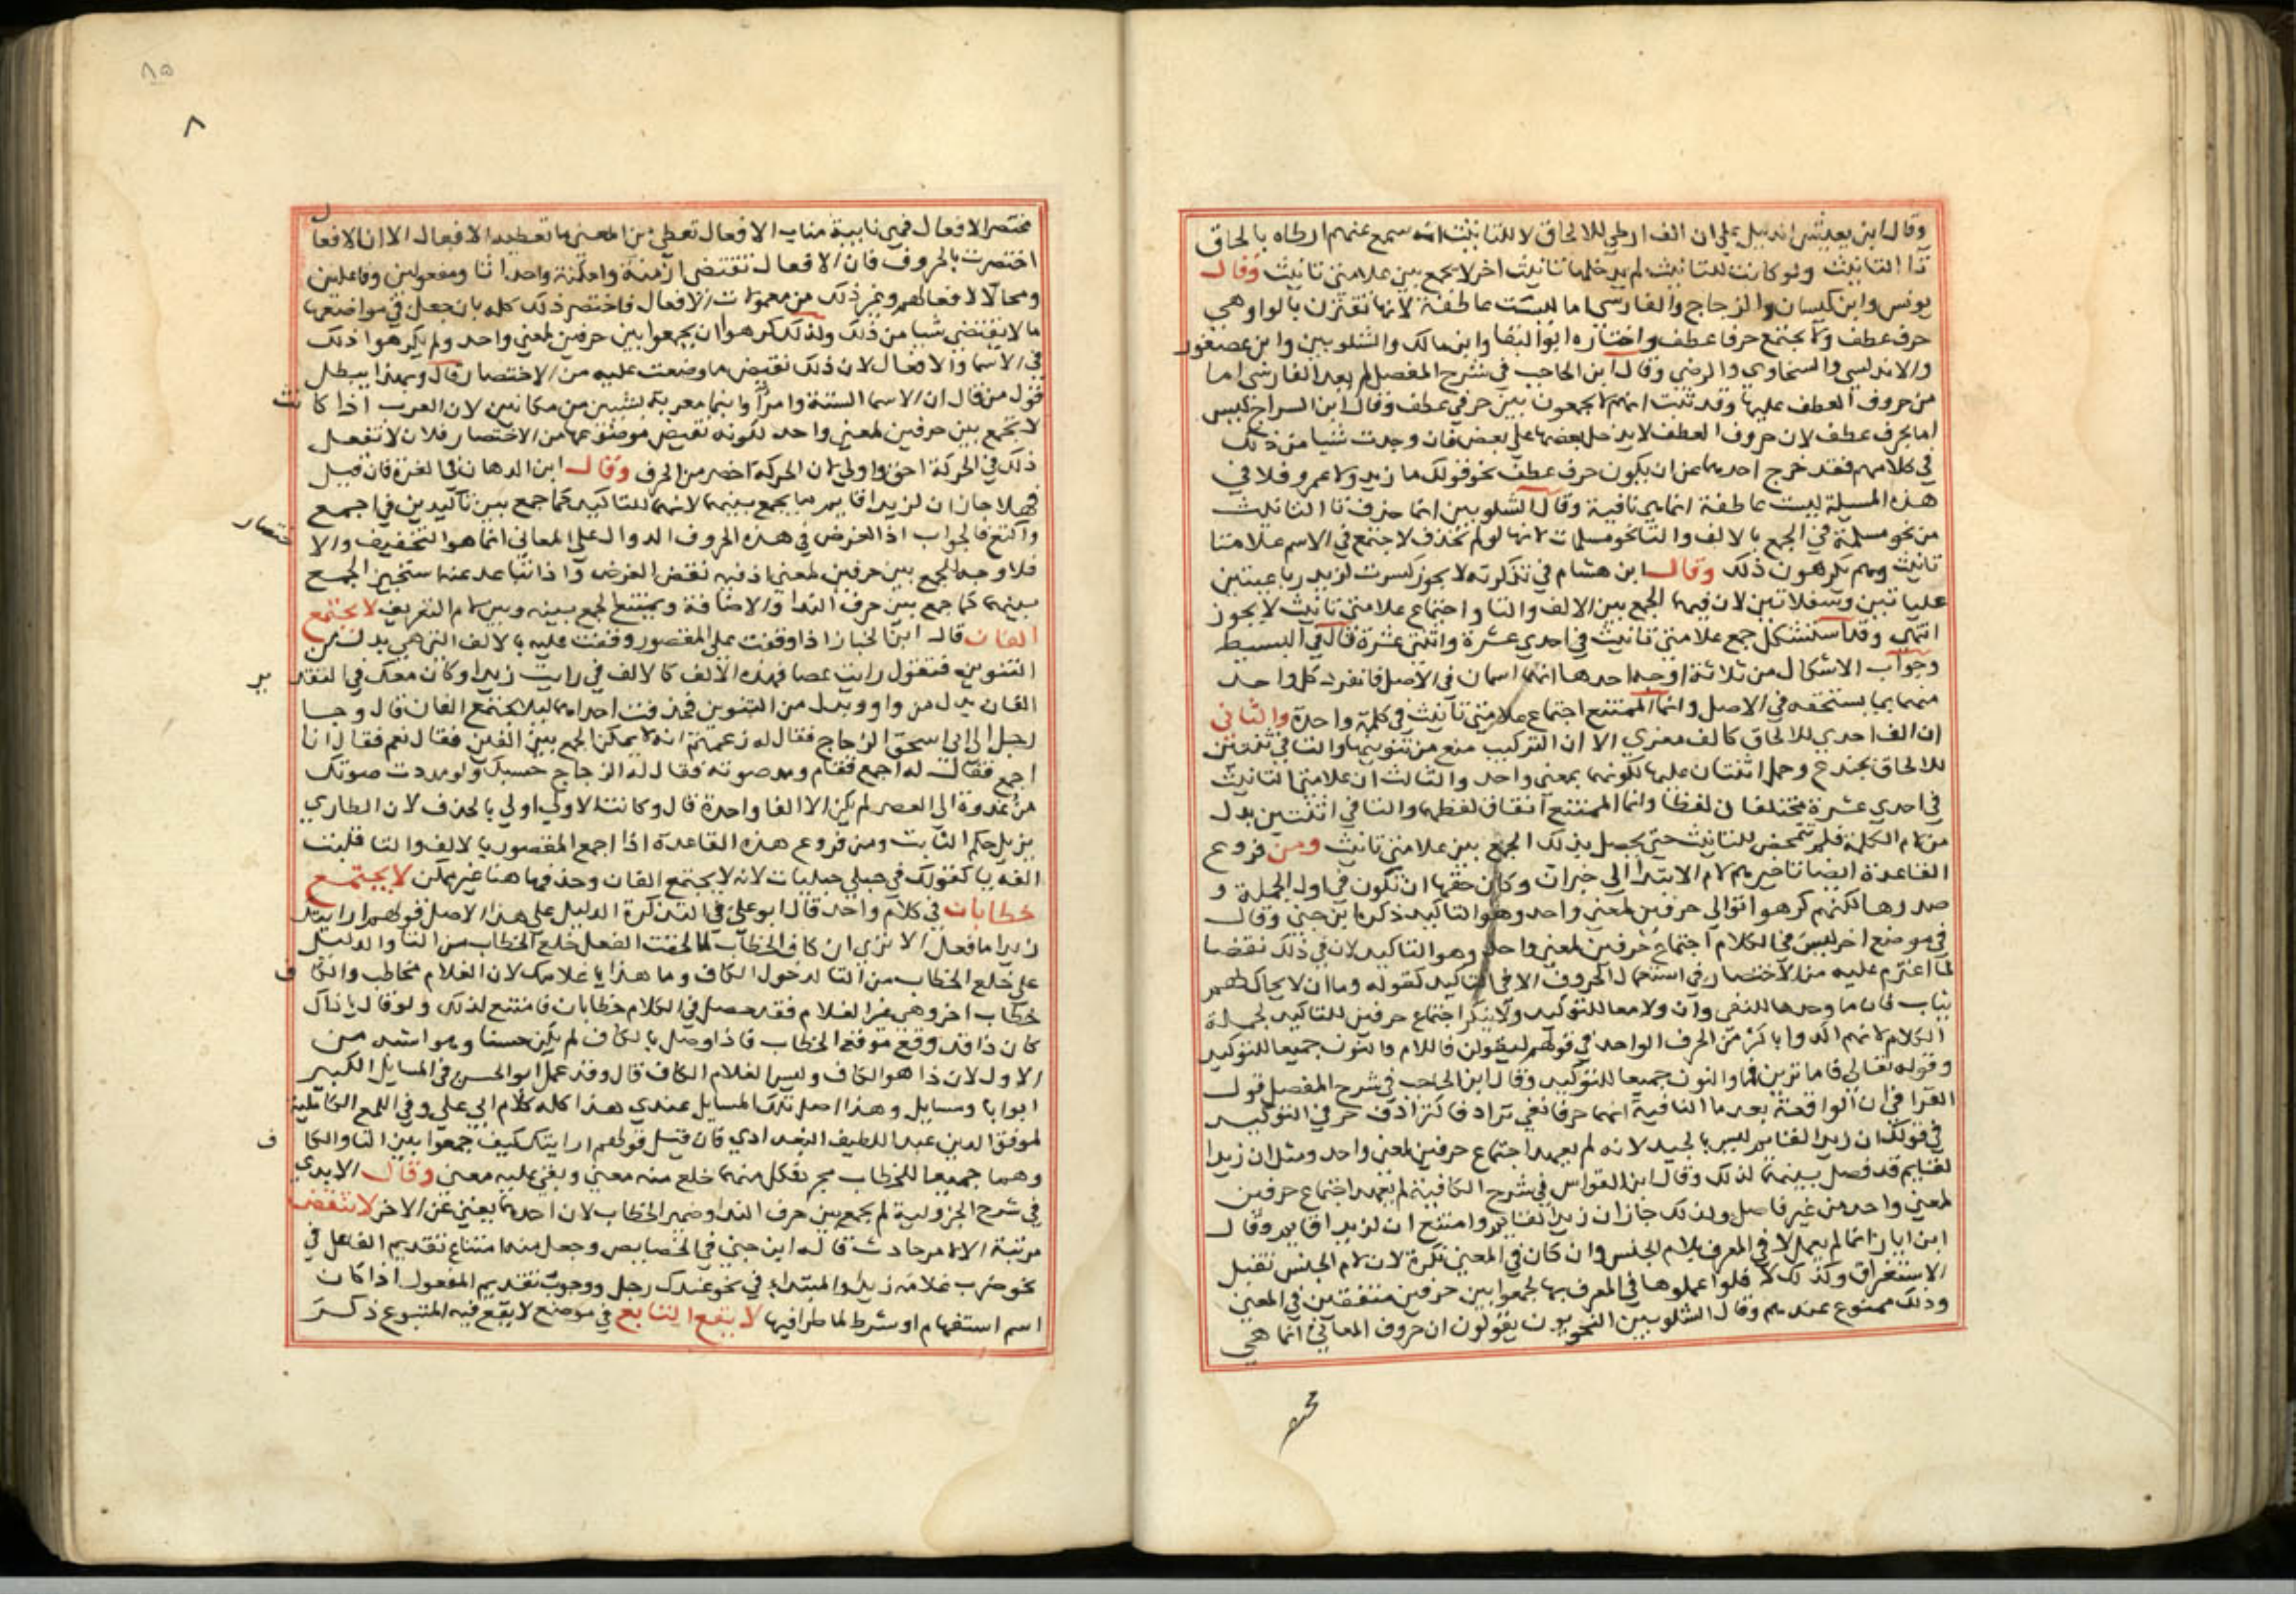 وقال ابن يعيش الدليل على ان الف ارطي للالحاق لا للتانيث انه سمع عنهم ارطاه بالحاق
تا التانيث ولو كانت للتانيث لم يدخلها تانيث اخر لا يجمع بين علامتي تانيث وقال
يونس وابن كيسان والزجاج والفارسي اما ليست عاطفة لانها تقترن بالواو وهي
حرف عطف ولا يجتمع حرفا عطف واختاره ابو البقا وابن مالك والشلوبين وابن عصفور
والاندلسي والسخاوي والرضي وقال ابن الحاجب في شرح المفصل لم يعد الفارسي اما
من حروف العطف عليها وقد ثبت انهم لا يجمعون بين حرفي عطف وقال ابن السراج ليس
اما بحرف عطف لان حروف العطف لا يدخل بعضها على بعض فان وجدت شيا من ذلك
في كلامهم فقد خرج احدهما عن ان يكون حرف عطف نحو قولك ما زيد ولا عمرو فلا في
هذه المسيلة ليست عاطفة انما هي نافية وقال الشلوبين انما حذف تا التانيث
من نحو مسلمة في الجمع بالالف والتا نحو مسلمات لانها لو لم تحذف لاجتمع في الاسم علامتا
تانيث وهم يكرهون ذلك وقال ابن هشام في تذكرته لا يجوز كسرت لزيد رباعيتين
علياتين وسفلاتين لان فيها الجمع بين الالف والتا واجتماع علامتي تانيث لا يجوز
انتهى وقد استشكل جمع علامتي تانيث في احدي عشرة واثنتي عشرة قال في البسيط
وجواب الاشكال من ثلاثة اوجه احدها انهما اسمان في الاصل فانفرد كل واحد
منهما بما يستحقه في الاصل وانما الممتنع اجتماع علامتي تانيث في كلمة واحدة والثاني
ان الف احدي للالحاق كالف معزي الا ان التركيب منع من تنوينها والتا في ثنتين
للالحاق بجذع وحمل اثنتان عليها لكونهما بمعني واحد والثالث ان علامتي التانيث
في احدي عشرة مختلفان لفظا وانما الممتنع اتفاق لفظهما والتا في اثنتين بدل
من لام الكلمة فلم تتمحض للتانيث حتي يحصل بذلك الجمع بين علامتي تانيث ومن فروع
القاعدة ايضا تاخيرهم لام الابتدا الي خبر ان وكان حقها ان تكون في اول الجملة و
صدرها لكنهم كرهوا توالي حرفين لمعني واحد وهو التاكيد ذكره ابن جني وقال
في موضع اخر ليس في الكلام اجتماع حرفين لمعني واحد وهو التاكيد لان في ذلك نقضا
لما اعتزم عليه من الاختصار في استعمال الحروف الا في التاكيد كقوله وما ان لا يحاك لهم
ثياب فان ما وحدها للنفي وان ولا معا للتوكيد ولا ينكر اجتماع حرفين للتاكيد لجملة
الكلام لانهم اكدوا باكثر من الحرف الواحد في قولهم ليقولن فاللام والنون جميعا للتوكيد
وقوله تعالى فاما ترين فما والنون جميعا للتوكيد وقال ابن الحاجب في شرح المفصل قول
الفرا في ان الواقعة بعد ما النافية انهما حرفا نفي ترادفا كترادف حرفي التوكيد
في قولك ان زيدا لقايم ليس بالجيد لانه لم يعهد اجتماع حرفين لمعني واحد ومثل ان زيدا
لقايم قد فصل بينهما لذلك وقال ابن القواس في شرح الكافية لم يعهد اجتماع حرفين
لمعني واحد من غير فاصل ولذلك جاز ان زيدا لقايم وامتنع ان لزيدا قايم وقال
ابن اياز انما لم يعمل لا في المعرف بلام الجنس وان كان في المعني نكرة لان لام الجنس تقبل
الاستغراق وكذلك لا فلو اعملوها في المعرف بها لجمعوا بين حرفين متفقين في المعني
وذلك ممنوع عندهم وقال الشلوبين النحويون يقولون ان حروف المعاني انما هي
مختصر
٨٥
٨
مختصر الافعال فهي نايبة مناب الافعال تعطي من المعني ما تعطيه الافعال الا ان الافعال
اختصرت بالحروف فان الافعال تقتضي ازمنة وامكنة واحداثا ومفعولين وفاعلين
ومحالا لافعالهم وغير ذلك من معمولات الافعال فاختصر ذلك كله بان جعل في مواضعها
ما لا يقتضي شيا من ذلك ولذلك كرهوا ان يجمعوا بين حرفين لمعني واحد ولم يكرهوا ذلك
في الاسما والافعال لان ذلك نقيض ما وضعت عليه من الاختصار قال وبهذا يبطل
قول من قال ان الاسما الستة وامرأ وابنما معربة بشيين من مكانين لان العرب اذا كانت
لا تجمع بين حرفين لمعني واحد لكونه نقيض موضوعهما من الاختصار فلان لا تفعل
ذلك في الحركة احق واولي لان الحركة اخصر من الحرف وقال ابن الدهان في الغرة فان قيل
فهلا جاز ان لزيدا قايم بما يجمع بينهما لانهما للتاكيد كما جمع بين تاكيدين في اجمع
واكتع فالجواب اذ الغرض في هذه الحروف الدوال على المعاني انما هو التخفيف والاختصار
فلا وجه للجمع بين حرفين لمعني اذ فيه نقض الغرض واذا تباعد عنه استجيز الجمع
بينهما كما جمع بين حرف الندا والاضافة ويمتنع الجمع بينه وبين لام التعريف لا يجتمع
الفان قال ابن الخباز اذا وقفت على المقصور وقفت عليه بالالف التي هي بدل من
التنوين فتقول رايت عصا فهذه الالف كالالف في رايت زيدا وكان معك في التقدير
الفان بدل من واو وبدل من التنوين فحذفت احداهما ليلا يجتمع الفان قال وجا
رجل الى ابي اسحق الزجاج فقال له زعمتم انه لا يمكن الجمع بين الفين فقال نعم فقال انا
اجمع فقال له اجمع فقام ومد صوته فقال له الزجاج حسبك ولو مددت صوتك
من غدوة الي العصر لم يكن الا الفا واحدة قال وكانت الاولي اولي بالحذف لان الطاري
يزيل حكم الثابت ومن فروع هذه القاعدة اذا جمع المقصور بالالف والتا قلبت
الفه يا كقولك في حبلي حبليات لانه لا يجتمع الفان وحذفها هنا غير ممكن لا يجتمع
خطابان في كلام واحد قال ابو علي في التذكرة الدليل على هذا الاصل قولهم ارايتك
زيدا ما فعل الا تري ان كاف الخطاب لما لحقت الفعل خلع الخطاب من التا والدليل
على خلع الخطاب من التا لدخول الكاف وما هذا يا غلامك لان الغلام مخاطب والكاف
خطاب اخر وهي غير الغلام فقد حصل في الكلام خطابان فامتنع لذلك ولو قال يا ذاك
كان ذا قد وقع موقع الخطاب فاذا وصل بالكاف لم يكن حسنا وهو اشبه من
الاول لان ذا هو الكاف وليس الغلام الكاف قال وقد عمل ابو الحسن في المسايل الكبير
ابوابا ومسايل وهذا اصل تلك المسايل عندي هذا كله كلام ابي علي وفي اللمع الكاملية
لموفق الدين عبد اللطيف البغدادي فان قيل قولهم ارايتك كيف جمعوا بين التا والكاف
وهما جميعا للخطاب فكل منهما خلع منه معني وبقي عليه معني وقال الابدي
في شرح الجزولية لم يجمع بين حرف الندا وضمير الخطاب لان احدهما يغني عن الاخر لا تنتقض
مرتبة الا لامر حادث قاله ابن جني في الخصايص وجعل منه امتناع تقديم الفاعل في
نحو ضرب غلامه زيدا والمبتدا في نحو عندك رجل ووجوب تقديم المفعول اذا كان
اسم استفهام او شرط لما طرا فيها لا يقع التابع في موضع لا يقع فيه المتبوع ذكر